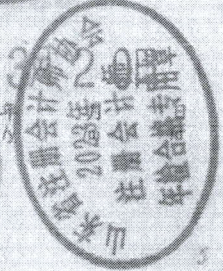 山东省注册会计师协会
2023年
注册会计
年检合格专用章